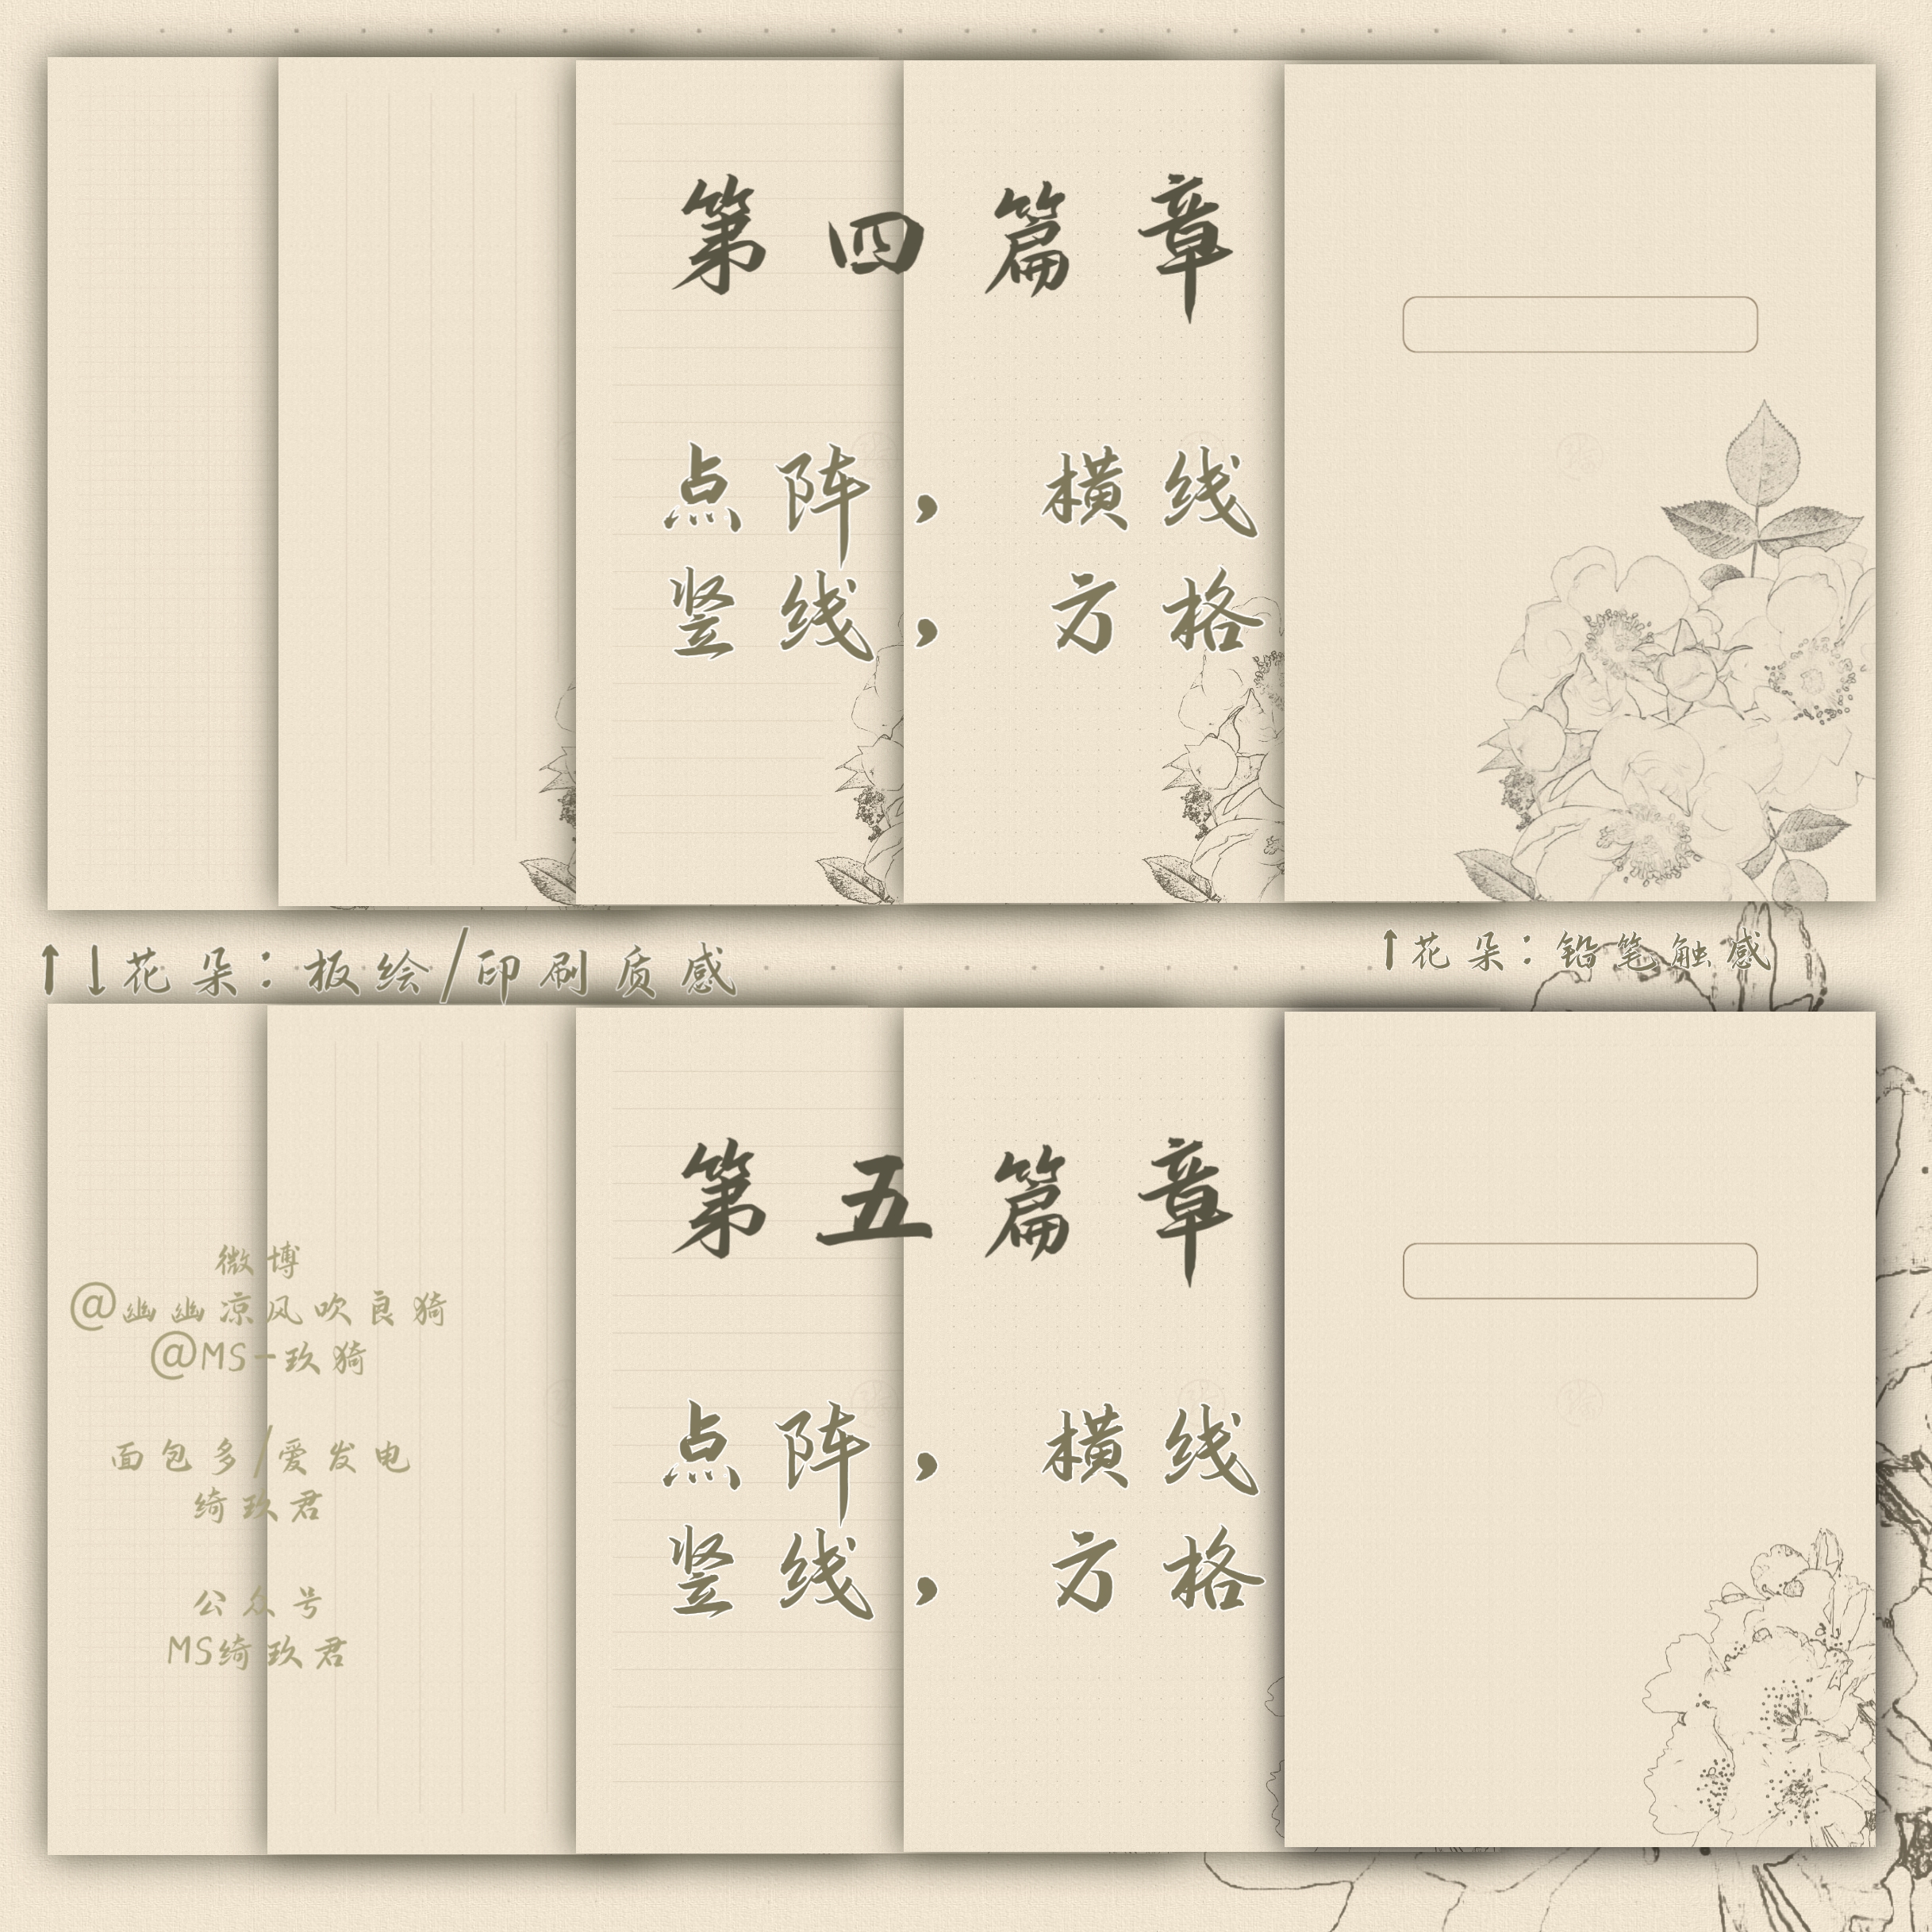 第四篇章
点阵， 横线
竖线， 方格
↑↓花朵：板绘/印刷质感
↑花朵：铅笔触感
第五篇章
点阵， 横线
竖线， 方格
微博
@幽幽凉风吹良猗
@MS-玖猗
面包多/爱发电
绮玖君
公众号
MS绮玖君